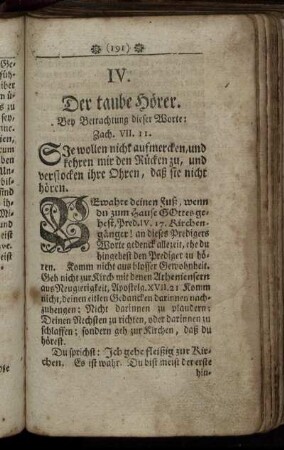 (191)
IV.
Der taube Hörer.
Bey Betrachtung dieser Worte:
Zach. VII. 11.
SJe wollen nicht aufmercken, und
kehren mir den Rücken zu, und
verstocken ihre Ohren, daß sie nicht
hören.
BEwahre deinen Fuß, wenn
du zum Hause GOttes ge-
hest, Pred. IV. 17. Kirchen-
gänger! an dieses Predigers
Worte gedenck allezeit, ehe du
hingehest den Prediger zu hö-
ren. Komm nicht aus blosser Gewohnheit.
Geh nicht zur Kirch mit denen Atheniensern
aus Neugierigkeit, Apostelg. XVII. 21 Komm
nicht, deinen eitlen Gedancken darinnen nach-
zuhengen; Nicht darinnen zu plaudern;
Deinen Nechsten zu richten, oder darinnen zu
schlaffen; sondern geh zur Kirchen, daß du
hörest.
Du sprichst: Jch gehe fleißig zur Kir-
chen. Es ist wahr. Du bist meist der erste
hin-